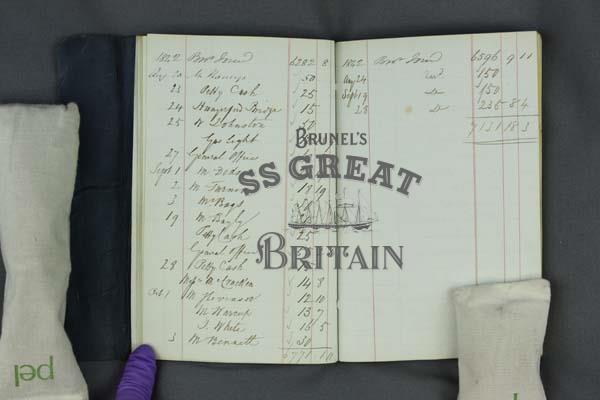 1842 Bro.t Ford 6282 8
Aug 20 50
23 Petty Cash 25
24 Hungerford Bridge 15
25 W Johnston 50
Gas Light
27 General Office
Sept 1 M
2 M Turner 18 19
3 Mr Bags
19 M Bayly
Petty Cash 25
General Office
28 Petty Cash
14 8
Oct 1 M Stevenson 12 10
M Warcup 13 7
J. White 16 5
3 M Bennett 30
6771 10
1842 Bro.t Ford 6596 9 11
Aug 24 150
Sept 19 Do 150
28 Do 235 8 4
7131 18 3
BRUNEL'S
SS GREAT
BRITAIN
pel